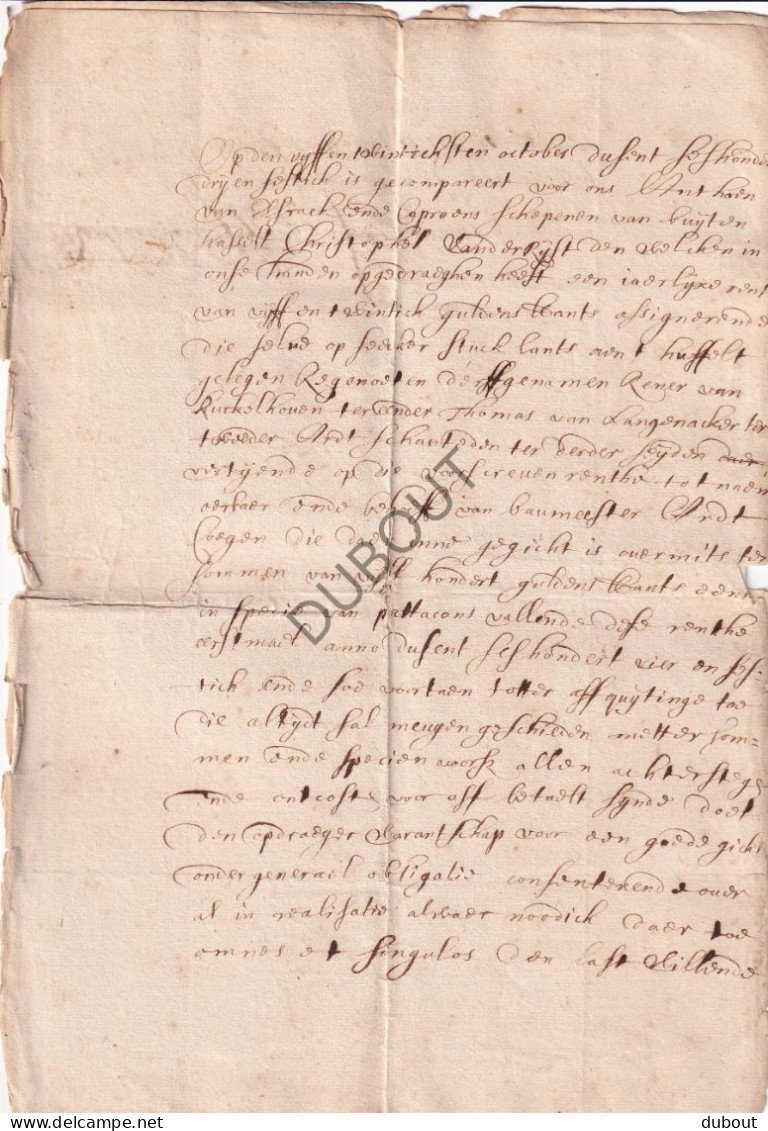 Op den vyffentwintichsten october dusent seshonde
dryensestich is gecompareert voor ons Anthoen
van Esrack ende Coproens schepenen van buyten
hasselt Christophel Vanderhyst den welcken in
onse handen opgedraeghen heeft een iaerlyxe rent
van vyff en twintich guldens brants assignerende
die selve op seecker stuck lants aent husselt
gelegen Regenoeten d'erffgenamen Rener van
Kuckelhoven ter eender Thomas van Langenacker ter
tweeder Ardt Schauteden ter derder seyden
vertyende op die voorscreven renthe tot naem
oerbaer ende behoeff van baumeester Ardt
Coegen die daer inne gegicht is overmits ter
sommen van vyff hondert guldens brants eens
in specie van pattacons vallende dese renthe
eerstmael anno dusent seshondert vier en ses=
tich ende soe voortaen totter affquytinge toe
die altydt sal meugen geschieden metter som=
men ende specien voors allen achterstege
ende ontcosten voor aff betaelt synde doet
den opdraeger warantschap voor een goede gicht
onder generael obligatie consenterende over
al in realisatie alwaer noodich daer toe
omnes et singulos den last willende
DUBOUT
www.dubout.com